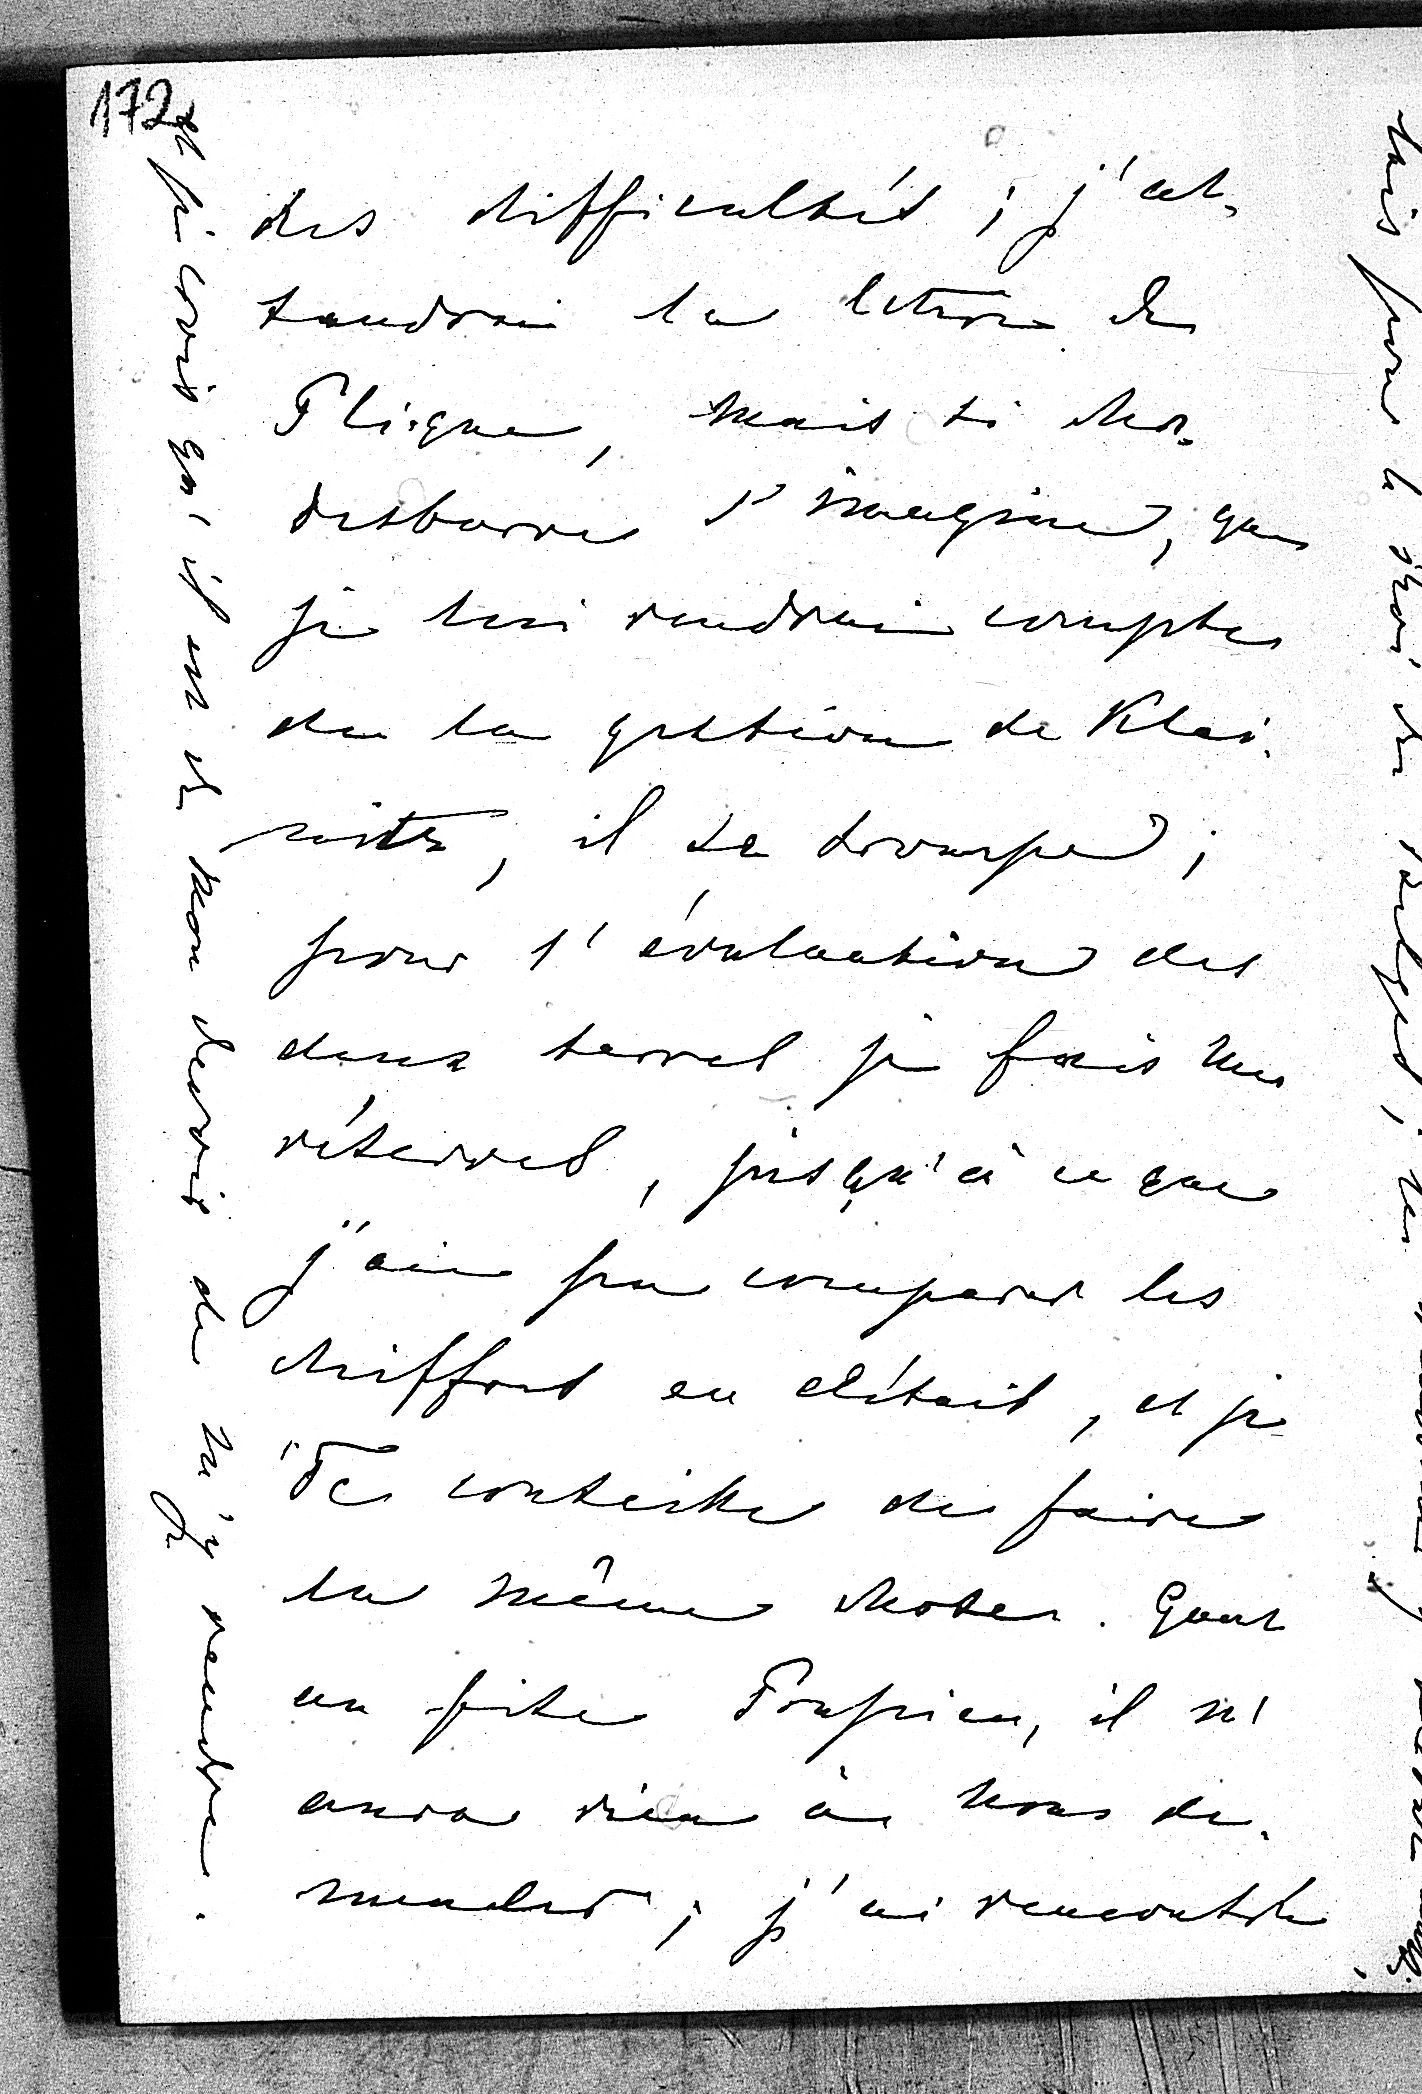 172
des difficultés ; j'at-
tendrai la lettre de
Plique, mais si Mr.
Desbarres s'imagine, que
je lui rendrai compte
de la gestion de Klei-
nitz, il se trompe ;
pour l'évaluation des
deux terres je fais mes
réserves, jusqu'à ce que
j'aie pu comparer les
chiffres en détail, et je
Te conseille de faire
la même chose. Quant
au petit Poupieu, il n'
aura rien à nous de-
mander ; j'ai rencontré
et je crois qu'il est de mon devoir de m'y rendre.
mais pour le Roi des Belges ;